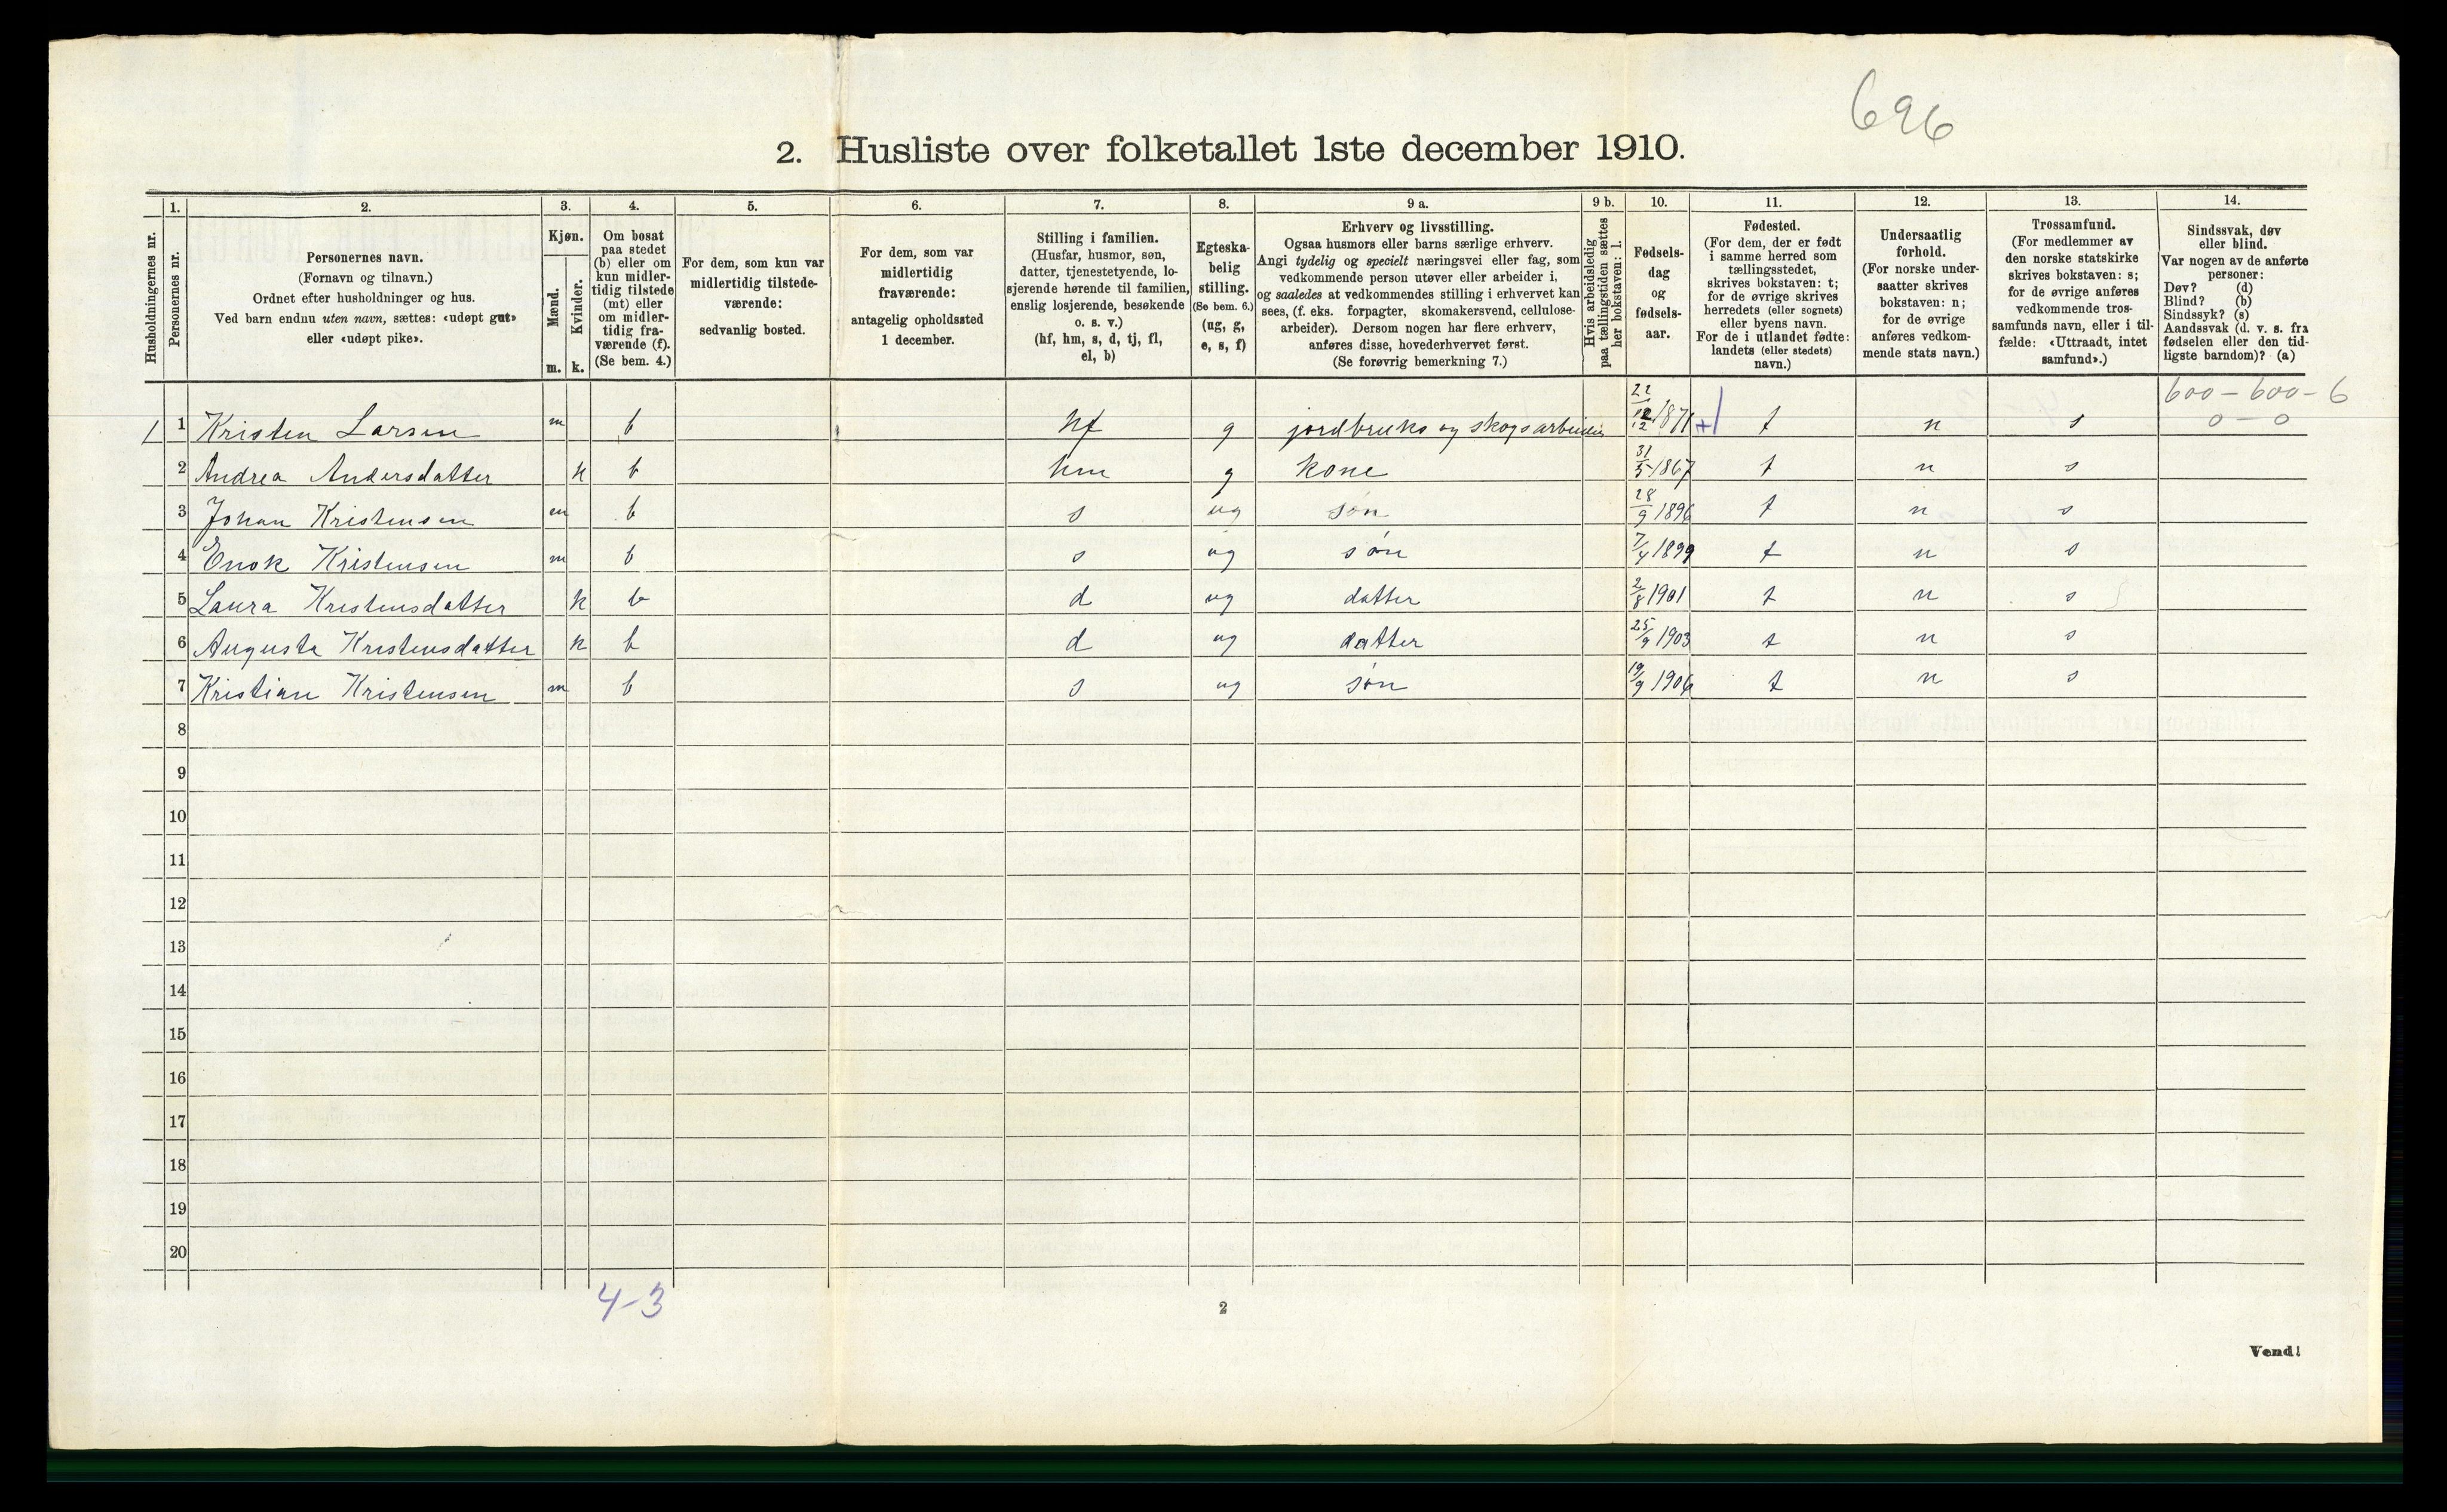 696
2. Husliste over folketallet 1ste december 1910.
Husholdningernes nr.
1. Personernes nr.
2. Personernes navn.
(Fornavn og tilnavn.)
Ordnet efter husholdninger og hus.
Ved barn endnu uten navn, sættes: «udøpt gut»
eller «udøpt pike».
3. Kjøn.
Mænd. Kvinder.
m. k.
4. Om bosat
paa stedet
(b) eller om
kun midler-
tidig tilstede
(mt) eller
om midler-
tidig fra-
værende (f).
(Se bem. 4.)
5. For dem, som kun var
midlertidig tilstede-
værende:
sedvanlig bosted.
6. For dem, som var
midlertidig
fraværende:
antagelig opholdssted
1 december.
7. Stilling i familien.
(Husfar, husmor, søn,
datter, tjenestetyende, lo-
sjerende hørende til familien,
enslig losjerende, besøkende
o. s. v.)
(hf, hm, s, d, tj, fl,
el, b)
8. Egteska-
belig
stilling.
(Se bem. 6.)
(ug, g,
e, s, f)
9 a. Erhverv og livsstilling.
Ogsaa husmors eller barns særlige erhverv.
Angi tydelig og specielt næringsvei eller fag, som
vedkommende person utøver eller arbeider i,
og saaledes at vedkommendes stilling i erhvervet kan
sees, (f. eks. forpagter, skomakersvend, cellulose-
arbeider). Dersom nogen har flere erhverv,
anføres disse, hovederhvervet først.
(Se forøvrig bemerkning 7.)
9 b. Hvis arbeidsledig
paa tællingstiden sættes
her bokstaven: l.
10. Fødsels-
dag
og
fødsels-
aar.
11. Fødested.
(For dem, der er født
i samme herred som
tællingsstedet,
skrives bokstaven: t;
for de øvrige skrives
herredets (eller sognets)
eller byens navn.
For de i utlandet fødte:
landets (eller stedets)
navn.)
12. Undersaatlig
forhold.
(For norske under-
saatter skrives
bokstaven: n;
for de øvrige
anføres vedkom-
mende stats navn.)
13. Trossamfund.
(For medlemmer av
den norske statskirke
skrives bokstaven: s;
for de øvrige anføres
vedkommende tros-
samfunds navn, eller i til-
fælde: «Uttraadt, intet
samfund».)
14. Sindssvak, døv
eller blind.
Var nogen av de anførte
personer:
Døv? (d)
Blind? (b)
Sindssyk? (s)
Aandssvak (d. v. s. fra
fødselen eller den tid-
ligste barndom)? (a)
600-600-6
0-0
1 1 Kristen Larsen m b hf g jordbruks og skogsarbeider 1871 t n s
2 Andrea Andersdatter k b hm g kone 31/5 1867 t n s
3 Johan Kristensen m b s ug søn 28/9 1896 t n s
4 Enok Kristensen m b s ug søn 7/4 1899 t n s
5 Laura Kristensdatter k b d ug datter 2/8 1901 t n s
6 Augusta Kristensdatter k b d ug datter 25/9 1903 t n s
7 Kristian Kristensen m b s ug søn 19/9 1906 t n s
8
9
10
11
12
13
14
15
16
17
18
19
20
4-3
2
Vend!